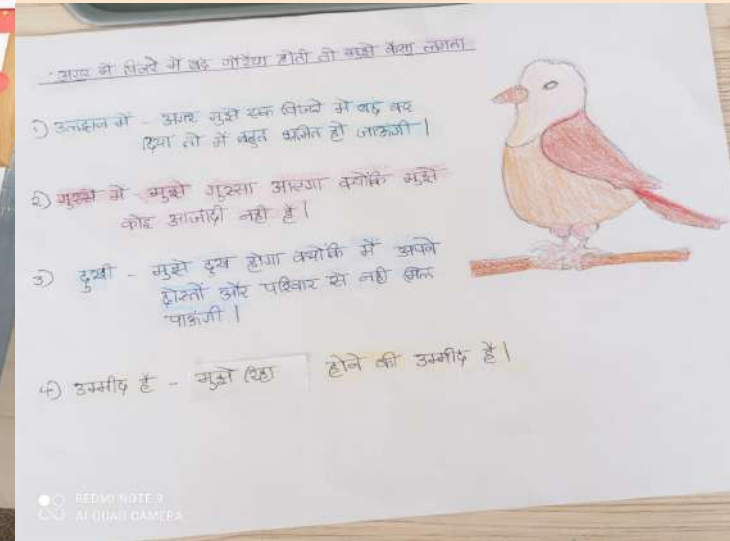 अगर में पिंजरे में बंद गोरैया होती तो मुझे कैसा लगता
1) उलझन में - अगर मुझे एक पिंजरे में बंद कर
दिया तो में बहुत भ्रमित हो जाऊंगी |
2) गुस्से में - मुझे गुस्सा आएगा क्योंकि मुझे
कोइ आजादी नही है |
3) दुखी - मुझे दुख होगा क्योंकि में अपने
दोस्तों और परिवार से नही मिल
पाऊंगी |
4) उम्मीद है - मुझे रिहा होने की उम्मीद है |
REDMI NOTE 9
AI QUAD CAMERA